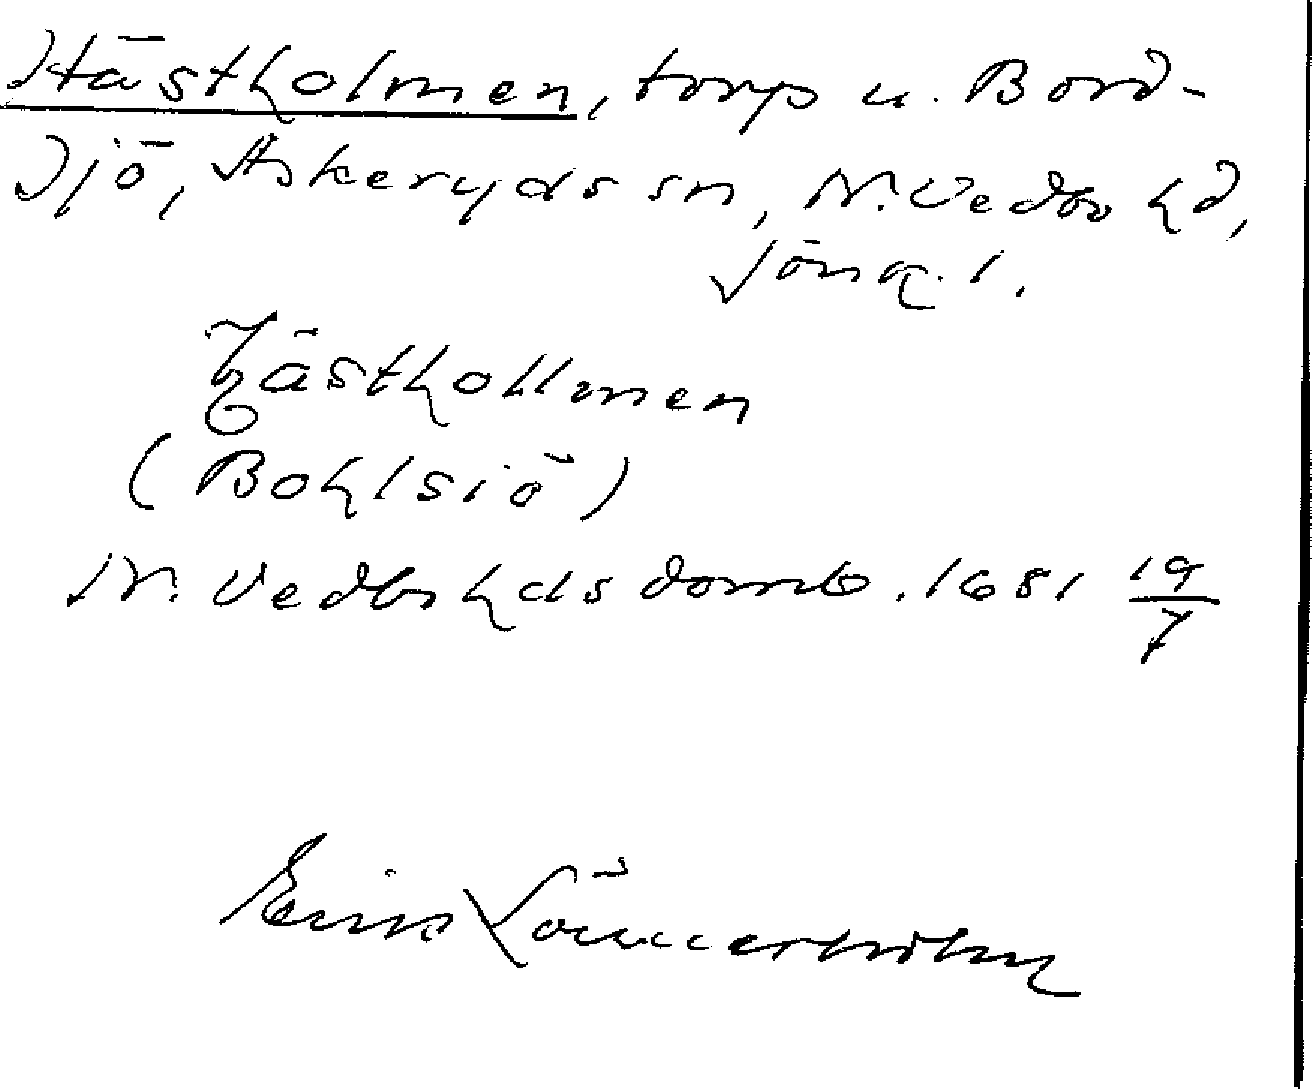 Hästholmen, torp u. Bord-
sjö, Askeryds sn, N. Vedbo hd,
Jönk. l.
Hästhollmen
(Bohlsiö)
N. Vedbo hds domb. 1681 19/7
Einar